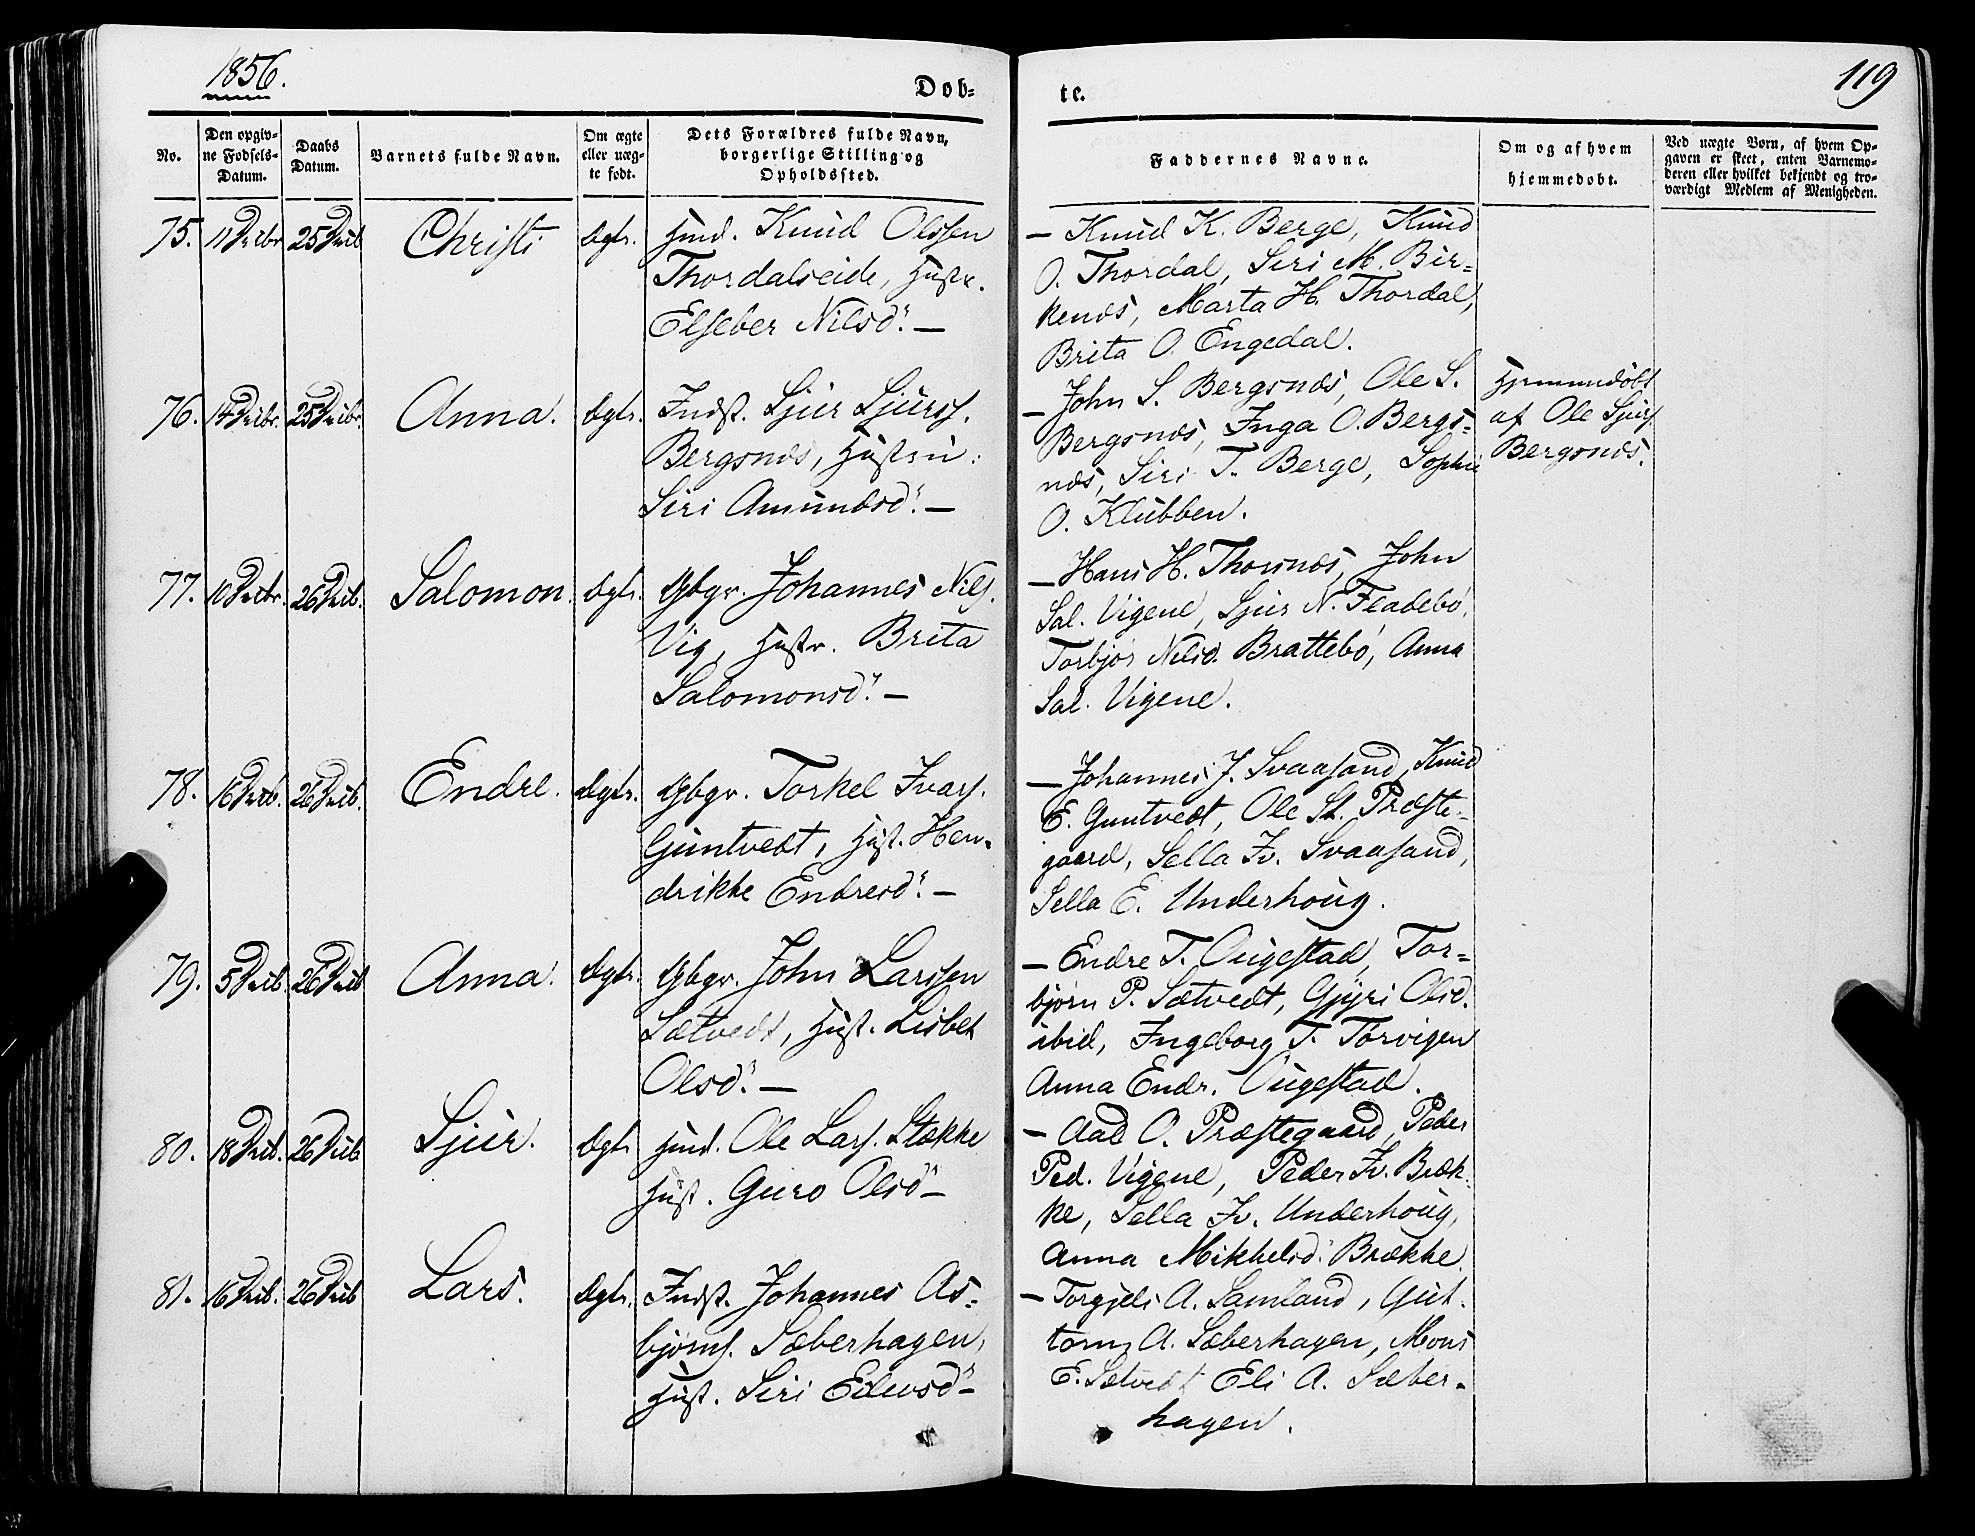 1856.
119
Døb-
te.
No.
Den opgiv-
ne Fødsels-
Datum.
Daabs
Datum.
Barnets fulde Navn.
Om ægte
eller uæg-
te født.
Dets Forældres fulde Navn,
borgerlige Stilling og
Opholdssted.
Faddernes Navne.
Om og af hvem
hjemmedøbt.
Ved uægte Børn, af hvem Op-
gaven er skeet, enten Barnemo-
deren eller hvilket bekjendt og tro-
værdigt Medlem af Menigheden.
75. 11 25 Christi Ægte. Huusm. Knud Olssen
Thordalseide, Hustr.
Elseber Nilsd: —
— Knud K. Berge, Knud
O. Thordal, Siri M. Bir=
kenæs, Marta H. Thordal,
Brita O. Engedal.
76. 14 25 Anna. Ægte. Inds. Sjur Sjurs.
Bergsnæs, Hustru:
Siri Amundsd: —
— John S. Bergsnæs, Ole S.
Bergsnæs, Inga O. Bergs=
næs, Siri T. Berge, Sophie
O. Klubben.
Hjemmedøbt
af Ole Sjurs.
Bergsnæs.
77. 10 26 Salomon. Ægte. Gbgr. Johannes Nils.
Vig, Hustr. Brita
Salomonsd: —
— Hans H. Thorsnæs, John
Sal. Vigene, Sjur N. Fladebø,
Torbjør Nilsd. Brattebø, Anna
Sal. Vigene.
78. 16 26 Endre. Ægte. Gbgr. Torkel Ivars.
Guntvedt, Hust. Hen=
drikke Endresd: —
— Johannes J. Svaasand, Knud
E. Guntvedt, Ole St. Præste-
gaard, Sella Iv. Svaasand,
Sella E. Underhoug.
79. 5 26 Anna. Ægte. Gbgr. John Larssen
Sætvedt, Hust. Lisbet
Olsd: —
— Endre T. Ougestad, Tor=
bjørn P. Sætvedt, Gjyri Olsd.
ibid, Ingeborg T. Torvigen
Anna Endr. Ougestad.
80. 18 26 Sjur. Ægte Huusm. Ole Lars. Stække
Hust. Guro Olsd —
— Aad O. Præstegaard, Peder
Ped. Vigene, Peder Iv. Bræk-
ke, Sella Iv. Underhoug,
Anna Mikkelsd: Brække.
81. 16 26 Lars. Ægte. Inds. Johannes As=
bjørns. Sæberhagen,
Hust. Siri
— Torgjels A. Samland, Gut-
torm A. Sæberhagen, Mons
E. Sætvedt Eli A. Sæber-
hagen.